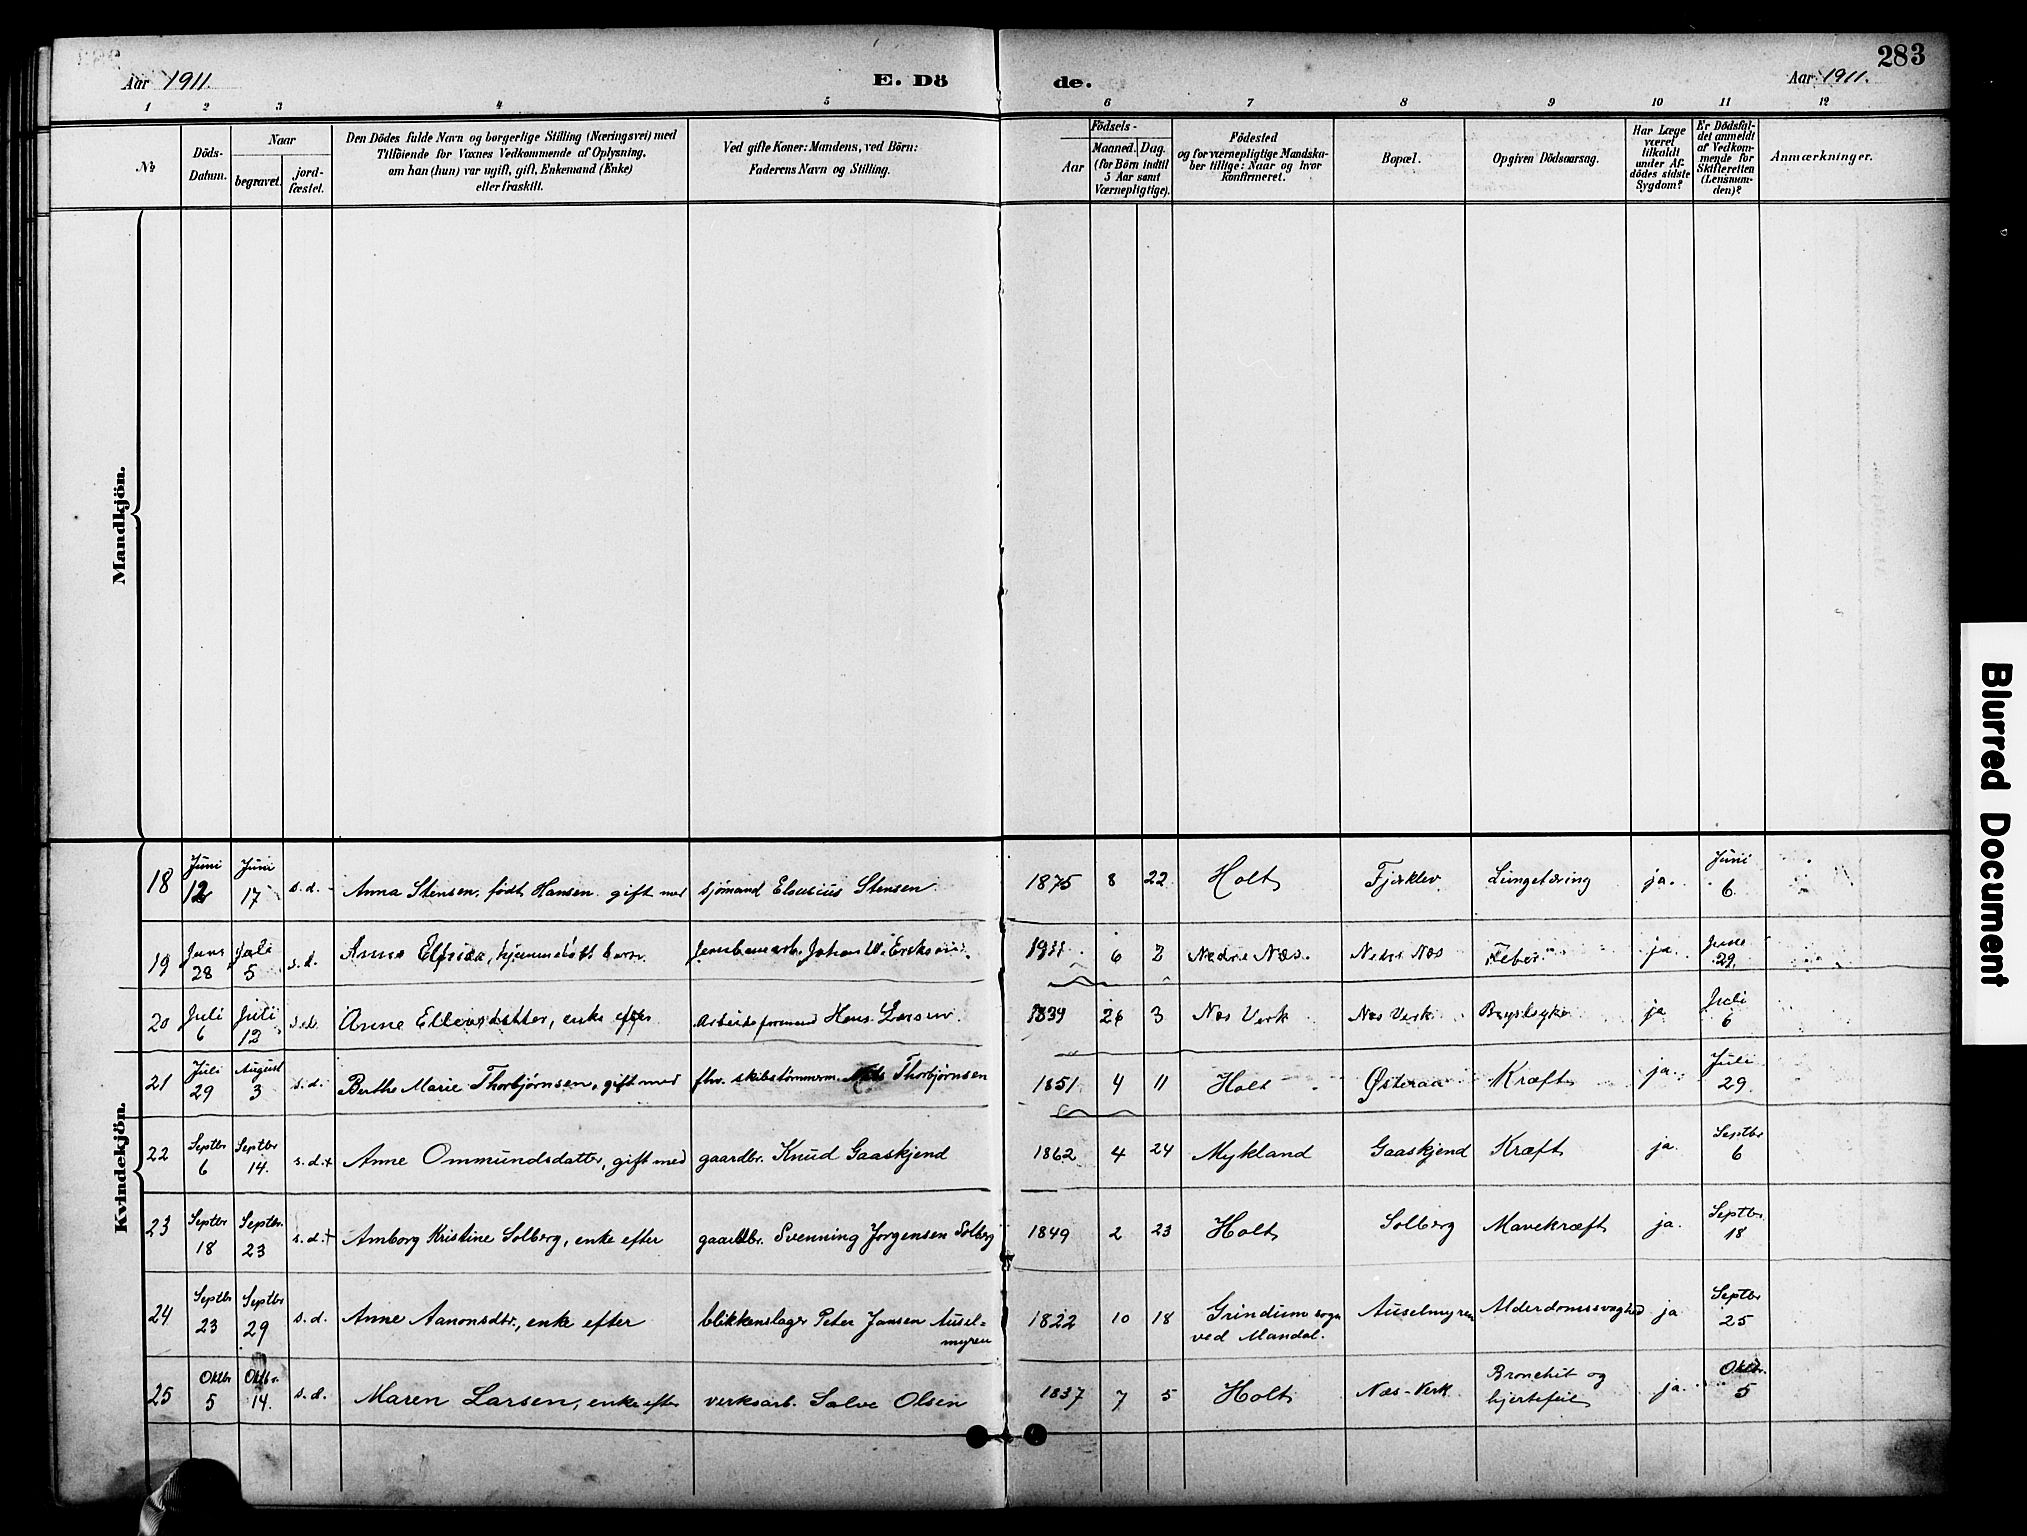 283
Aar 1911. E. Dö de. Aar 1911.
1 2 3 4 5 6 7 8 9 10 11 12
No
Döds-Datum.
Naar
begravet.
jord-fæstet.
Den Dödes fulde Navn og borgerlige Stilling (Næringsvei) med
Tilföiende for Voxnes Vedkommende af Oplysning,
om han (hun) var ugift, gift, Enkemand (Enke)
eller fraskilt.
Ved gifte Koner: Mandens, ved Börn:
Faderens Navn og Stilling.
Födsels-
Aar
Maaned. Dag.
(for Börn indtil
5 Aar samt
Værnepligtige).
Födested
og for værnepligtige Mandska-
ber tillige: Naar og hvor
konfirmeret.
Bopæl.
Opgiven Dödsaarsag.
Har Læge
været
tilkaldt
under Af-
dödes sidste
Sygdom?
Er Dödsfal-
det anmeldt
af Vedkom-
mende for
Skifteretten
(Lensman-
den)?
Anmærkninger.
Mandkjön.
Kvindekjön.
18 Juni 12 Juni 17 s.d. Anna Stensen, født Hansen gift med sjømand Stensen 1875 8 22 Holt Fjærklev Lungetæring ja. Juni 6
19 Juni 28 Juli 5 s.d. Anna hjemmedøbt barn Johan W. 1911 6 2 Nedre Næs. Nedre Næs Feber ja June 29
20 Juli 6 Juli 12 s.d. Anne Ellevsdatter, enke efter Arbeidsformand Hans Larsen 1839 26 3 Næs Verk Næs Verk Brystsyke ja Juli 6
21 Juli 29 August 3 s.d. Berthe Marie Thorbjørnsen, gift med fhv. skibstømmerm. Thorbjørnsen 1851 4 11 Holt Østeraa Kræft ja. Juli 29
22 Septbr 6 Septbr 14. s.d.+ Anne Ommundsdatter, gift med gaardbr. Knud Gaaskjend 1862 4 24 Mykland Gaaskjend Kræft ja. Septbr 6
23 Septbr 18 Septbr. 23 s.d.+ Amborg Kristine Solberg, enke efter gaardbr. Svenning Jørgensen Solberg 1849 2 23 Holt Solberg Mavekræft ja. Septbr. 18
24 Septbr 23 Septbr 29 s.d. Anne Aanonsdtr., enke efter blikkenslager Peter Jansen Ausel=
myren 1822 10 18 Grindum sogn
ved Mandal. Auselmyren Alderdomssvaghed ja Septbr 25
25 Oktbr 5 Oktbr. 14. s.d. Maren Larsen, enke efter verksarb. Salve Olsen 1837 7 5 Holt Næs-Verk Bronchit og
hjertefeil ja. Oktbr. 5
Blurred Document